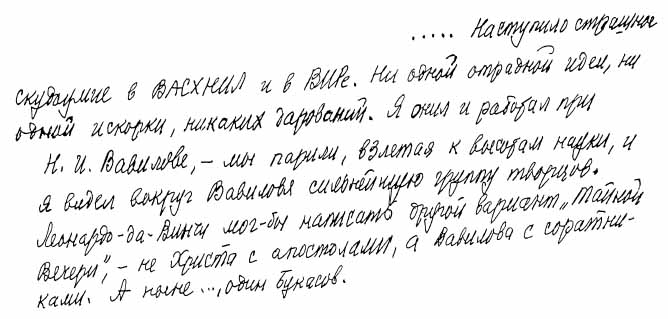 ..... Наступило страшное
скудоумие в ВАСХНИЛ и в ВИРе. Ни одной отрадной идеи, ни
одной искорки, никаких дарований. Я жил и работал при
Н. И. Вавилове, – мы парили, взлетая к высотам науки, и
я видел вокруг Вавилова сильнейшую группу творцов.
Леонардо-да-Винчи мог-бы написать другой вариант „Тайной
Вечери", – не Христа с апостолами, а Вавилова с соратни-
ками. А ныне ..., один Букасов.